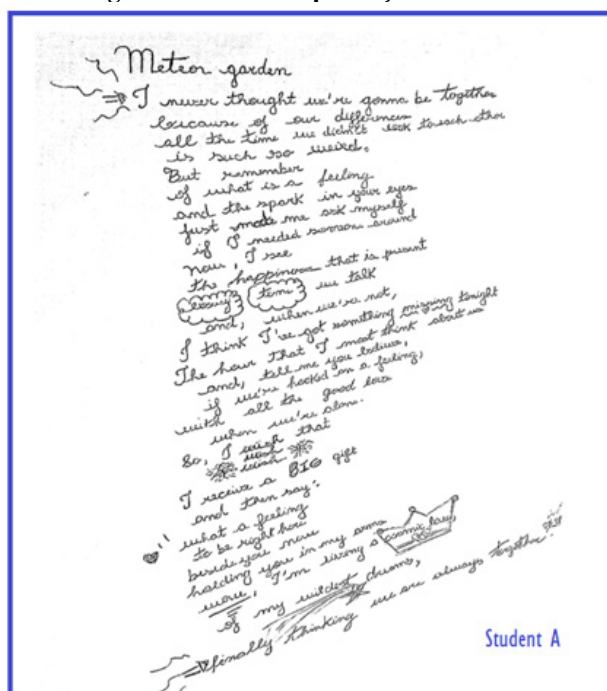 Meteor garden
I never thought we're gonna be together
because of our differences
all the time we didn't look to each other
is such so weird.
But remember
of what is a feeling
and the spark in your eyes
just made me ask myself
if I needed someone around
now, I see
the happiness that is present
time we talk
and, when we're not,
I think I've got something missing tonight
The hour that I most think about us
and, tell me you believe,
if we're hooked on a feeling,
with all the good love
when we're alone.
So, I wish that
wish
wish
I receive a BIG gift
and then say:
"what a feeling
to be right here
beside you now
holding you in my arms
I'm living a cosmic love
of my wildest dreams,
finally thinking we are always together!
Student A